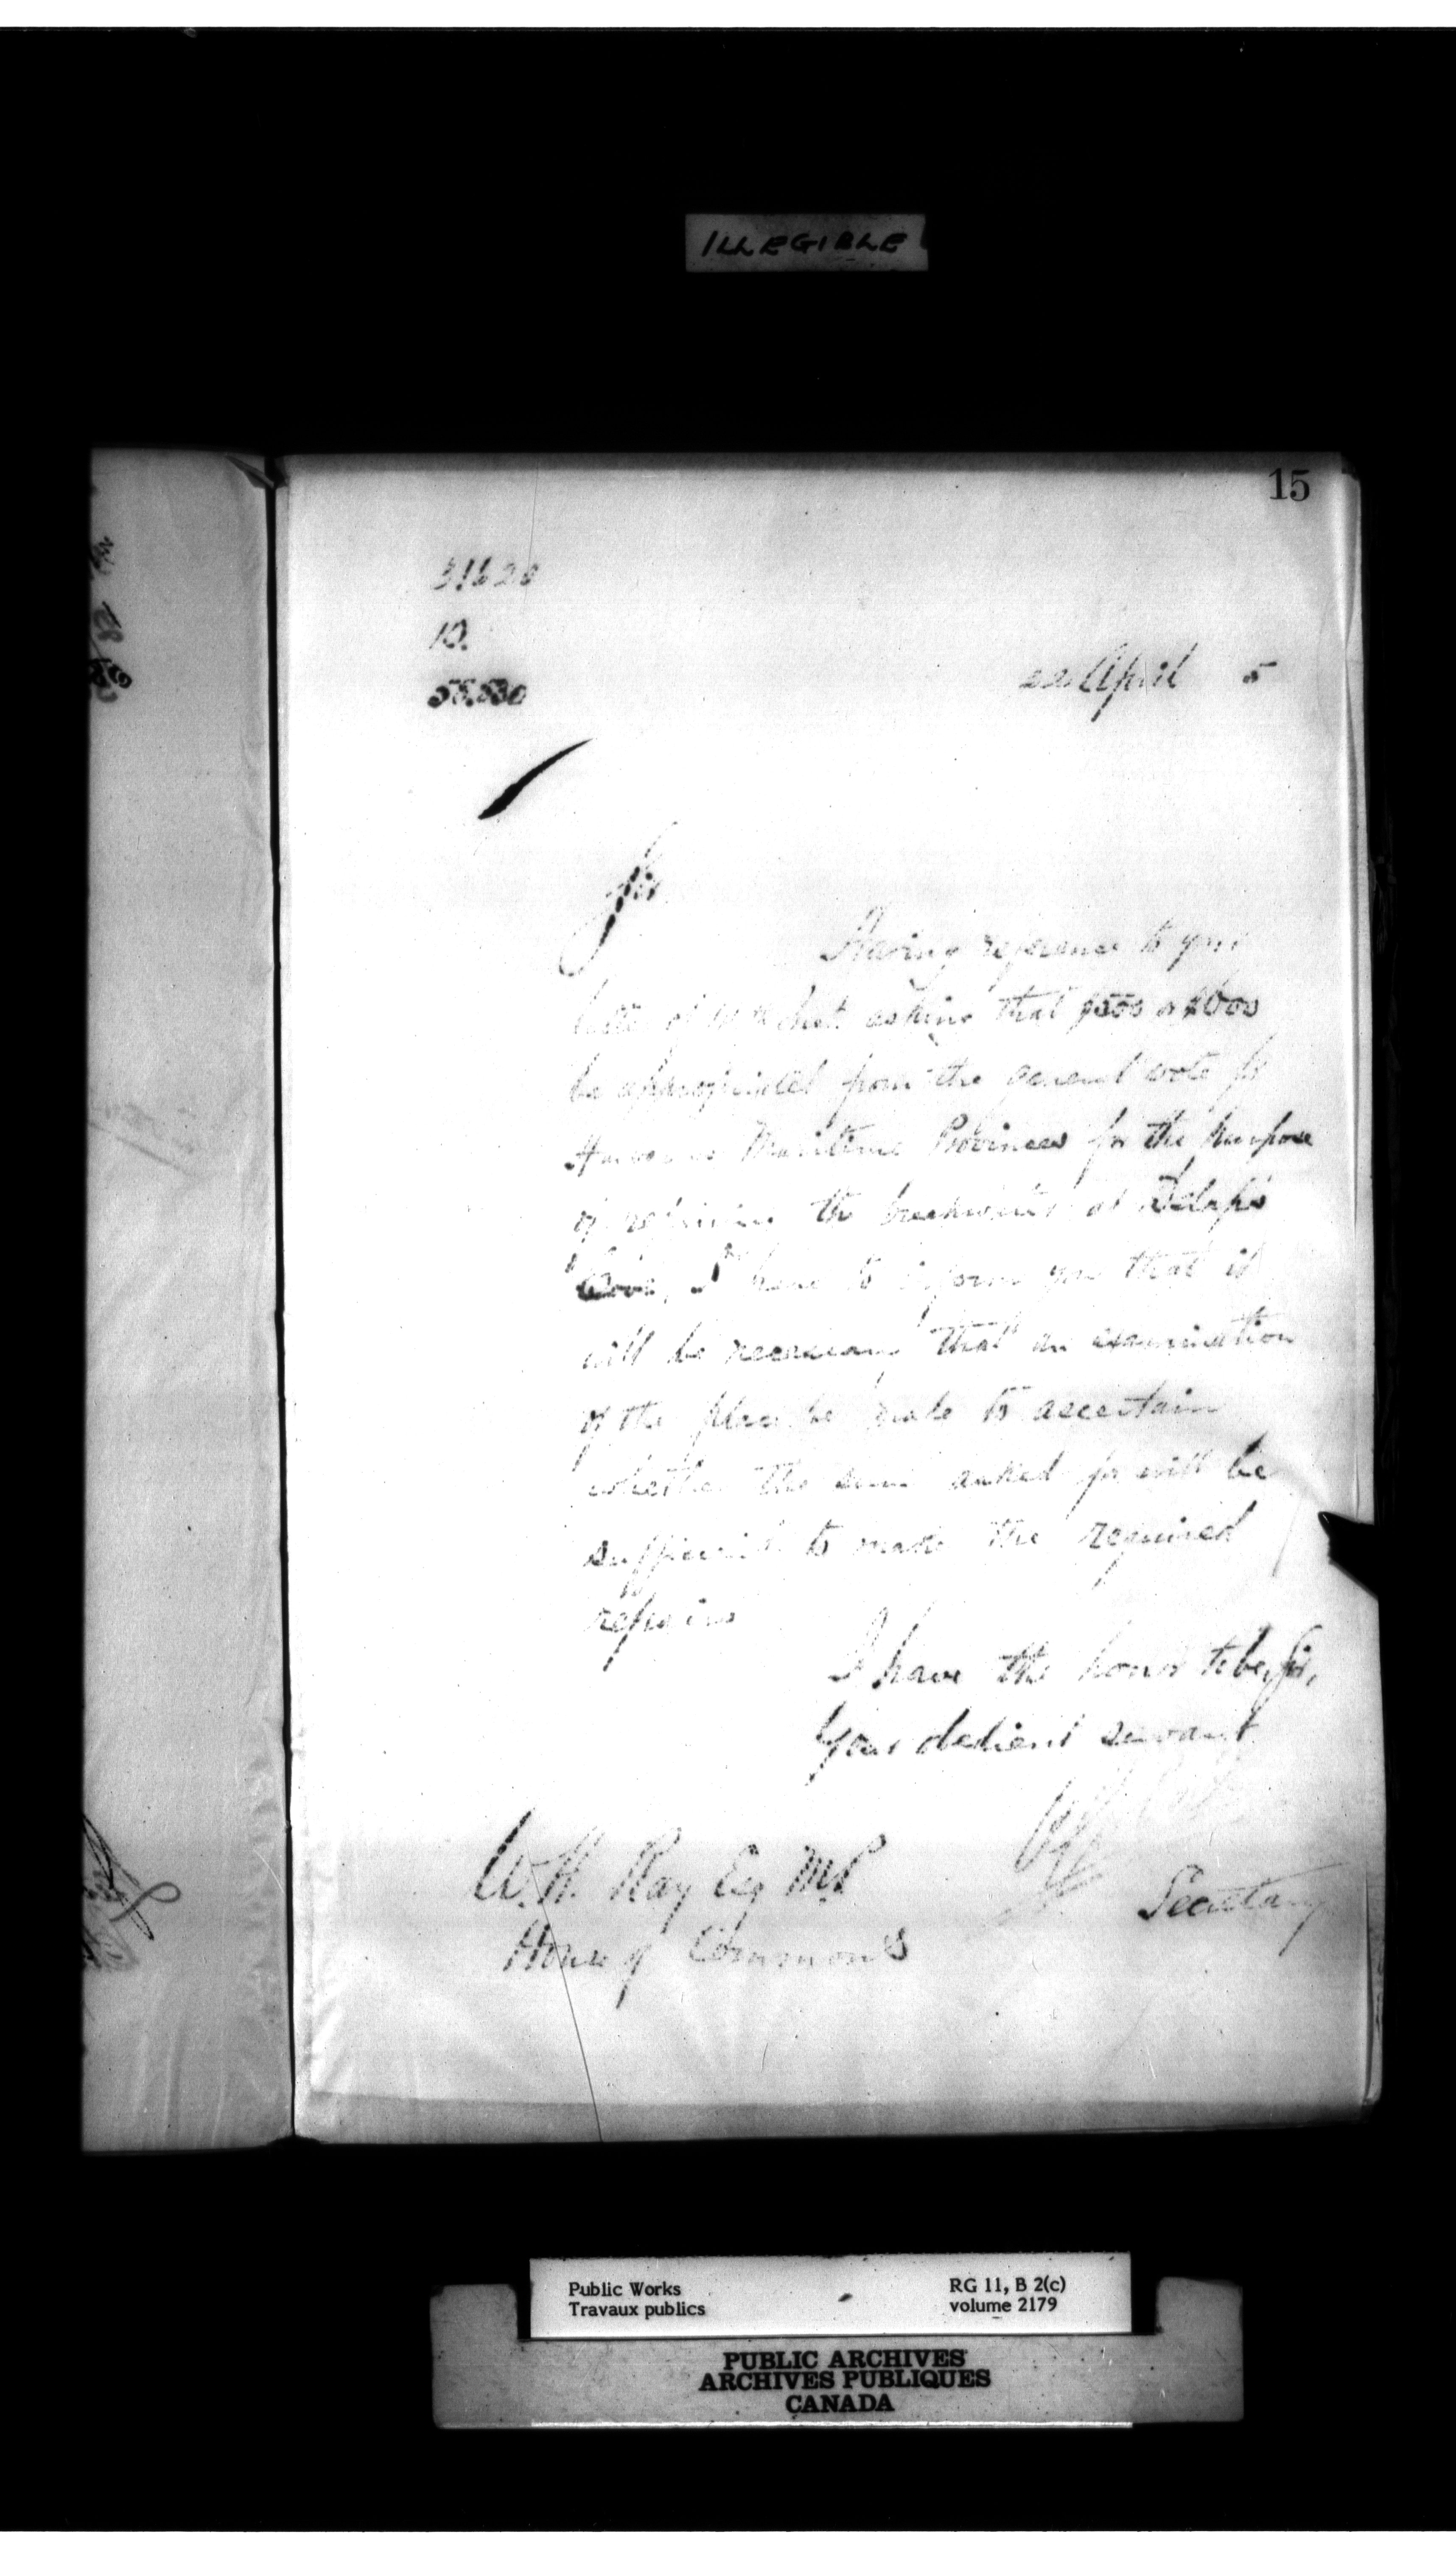 ILLEGIBLE
15
31620
10.
55.530
22 April 5
Sir
Having reference to your
letter of inst. asking that $500 or $600
be appropriated from the general vote for
Harbors Maritime Provinces for the purpose
of repairing the breakwater at Delap's
Cove, I have to inform you that it
will be necessary that an examination
of the place be made to ascertain
whether the sum asked for will be
sufficient to make the required
repairs
I have the honor to be, Sir,
Your obedient servant
W.H. Ray Esq M.P.
Secretary
House of Commons
Public Works
Travaux publics
RG 11, B 2(c)
volume 2179
PUBLIC ARCHIVES
ARCHIVES PUBLIQUES
CANADA